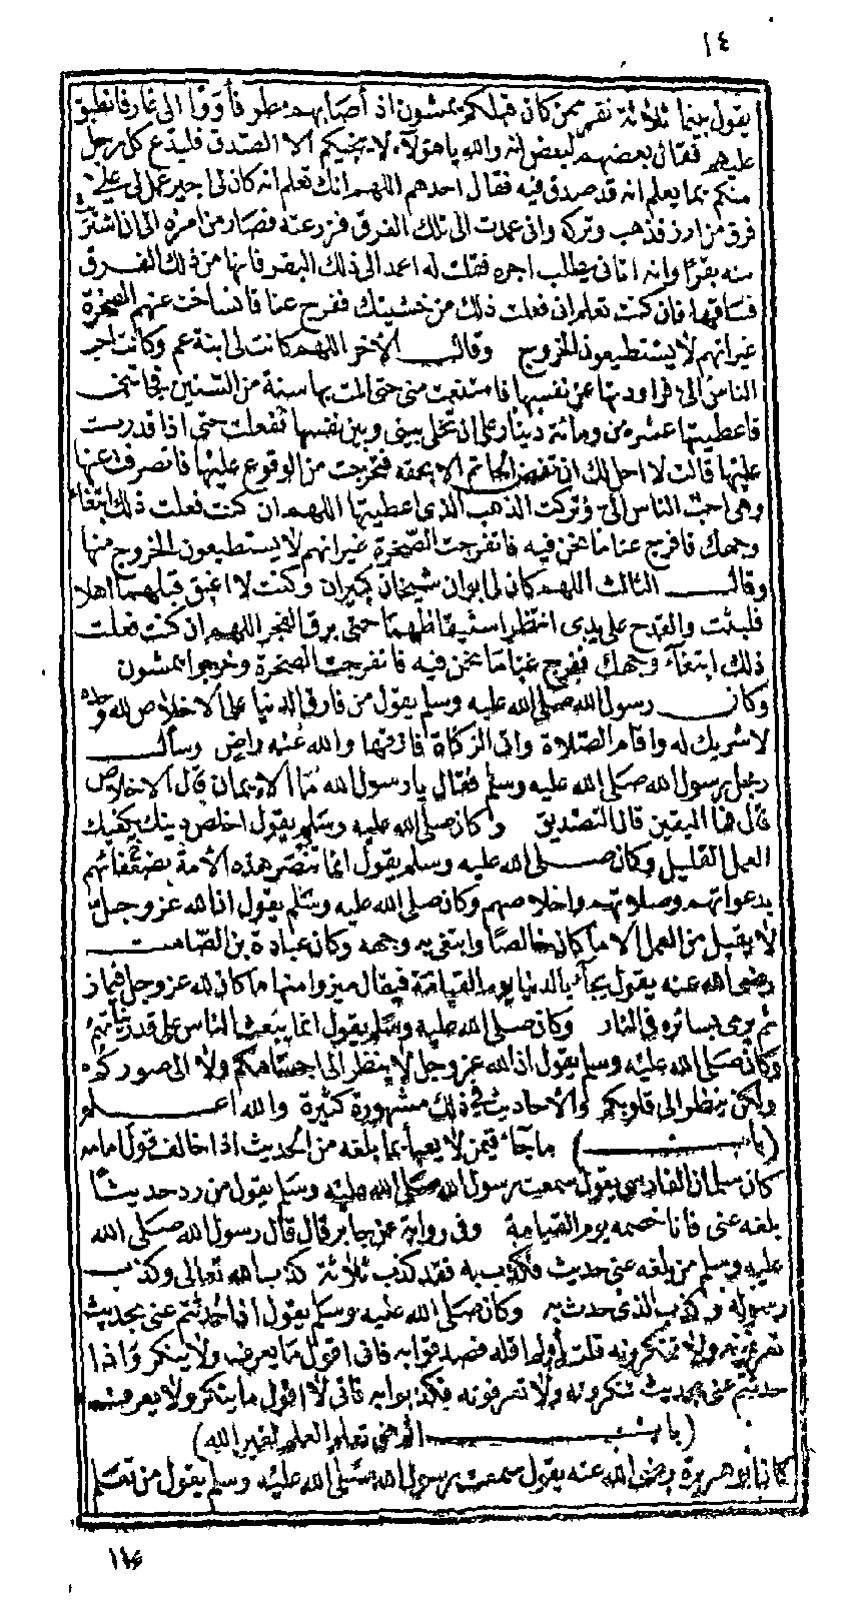 ١٤
يقول بينما ثلاثة نفر ممن كان قبلكم يمشون اذ أصابهم مطر فأووا الى غار فانطبق
عليهم فقال بعضهم لبعض انه والله يا هؤلاء لا ينجيكم الا الصدق فليدع كل رجل
منكم بما يعلم انه قد صدق فيه فقال احدهم اللهم انك تعلم انه كان لى اجير عمل لى على
فرق من ارز فذهب وتركه وانى عمدت الى ذلك الفرق فزرعته فصار من امره الى ان اشتريت
منه بقرا وانه اتانى يطلب اجره فقلت له اعمد الى ذلك البقر فانها من ذلك الفرق
فساقها فان كنت تعلم انى فعلت ذلك من خشيتك ففرج عنا فانساخت عنهم الصخرة
غير انهم لا يستطيعون الخروج وقال الاخر اللهم كانت لى ابنة عم وكانت احب
الناس الى فراودتها عن نفسها فامتنعت منى حتى المت بها سنة من السنين فجاءتنى
فاعطيتها عشرين ومائة دينار على ان تخلى بينى وبين نفسها ففعلت حتى اذا قدرت
عليها قالت لا احل لك ان تفض الخاتم الا بحقه فتحرجت من الوقوع عليها فانصرفت عنها
وهى احب الناس الى وتركت الذهب الذى اعطيتها اللهم ان كنت فعلت ذلك ابتغاء
وجهك فافرج عنا ما نحن فيه فانفرجت الصخرة غير انهم لا يستطيعون الخروج منها
وقال الثالث اللهم كان لى ابوان شيخان كبيران وكنت لا اغبق قبلهما اهلا
فلبثت والقدح على يدى انتظر استيقاظهما حتى برق الفجر اللهم ان كنت فعلت
ذلك ابتغاء وجهك ففرج عنا ما نحن فيه فانفرجت الصخرة وخرجوا يمشون
وكان رسول الله صلى الله عليه وسلم يقول من فارق الدنيا على الاخلاص لله وحده
لا شريك له واقام الصلاة واتى الزكاة فارقها والله عنه راض وسأل
رجل رسول الله صلى الله عليه وسلم فقال يا رسول الله ما الايمان قال الاخلاص
قال فما اليقين قال التصديق وكان صلى الله عليه وسلم يقول اخلص دينك يكفيك
العمل القليل وكان صلى الله عليه وسلم يقول انما تنصر هذه الأمة بضعفائهم
بدعواتهم وصلاتهم واخلاصهم وكان صلى الله عليه وسلم يقول ان الله عز وجل
لا يقبل من العمل الا ما كان خالصا وابتغى به وجهه وكان عبادة بن الصامت
رضى الله عنه يقول يجاء بالدنيا يوم القيامة فيقال ميزوا منها ما كان لله عز وجل فيماز
ثم يرمى بسائره في النار وكان صلى الله عليه وسلم يقول انما يبعث الناس على قدر نياتهم
وكان صلى الله عليه وسلم يقول ان الله عز وجل لا ينظر الى اجسامكم ولا الى صوركم
ولكن ينظر الى قلوبكم والأحاديث في ذلك مشهورة كثيرة والله اعلم
(باب) ما جاء فيمن لا يعبأ بما بلغه من الحديث اذا خالف قول امامه
كان سلمان الفارسى يقول سمعت رسول الله صلى الله عليه وسلم يقول من رد حديثا
بلغه عنى فانا خصمه يوم القيامة وفى رواية عن جابر قال قال رسول الله صلى الله
عليه وسلم من بلغه عنى حديث فكذب به فقد كذب ثلاثة كذب الله تعالى وكذب
رسوله وكذب الذى حدث به وكان صلى الله عليه وسلم يقول اذا حدثتم عنى بحديث
تعرفونه ولا تنكرونه قلته أو لم اقله فصدقوا به فانى اقول ما يعرف ولا ينكر واذا
حدثتم عنى بحديث تنكرونه ولا تعرفونه فكذبوا به فانى لا اقول ما ينكر ولا يعرف
(باب الترهيب تعلم العلم لغير الله)
كان أبو هريرة رضى الله عنه يقول سمعت رسول الله صلى الله عليه وسلم يقول من تعلم